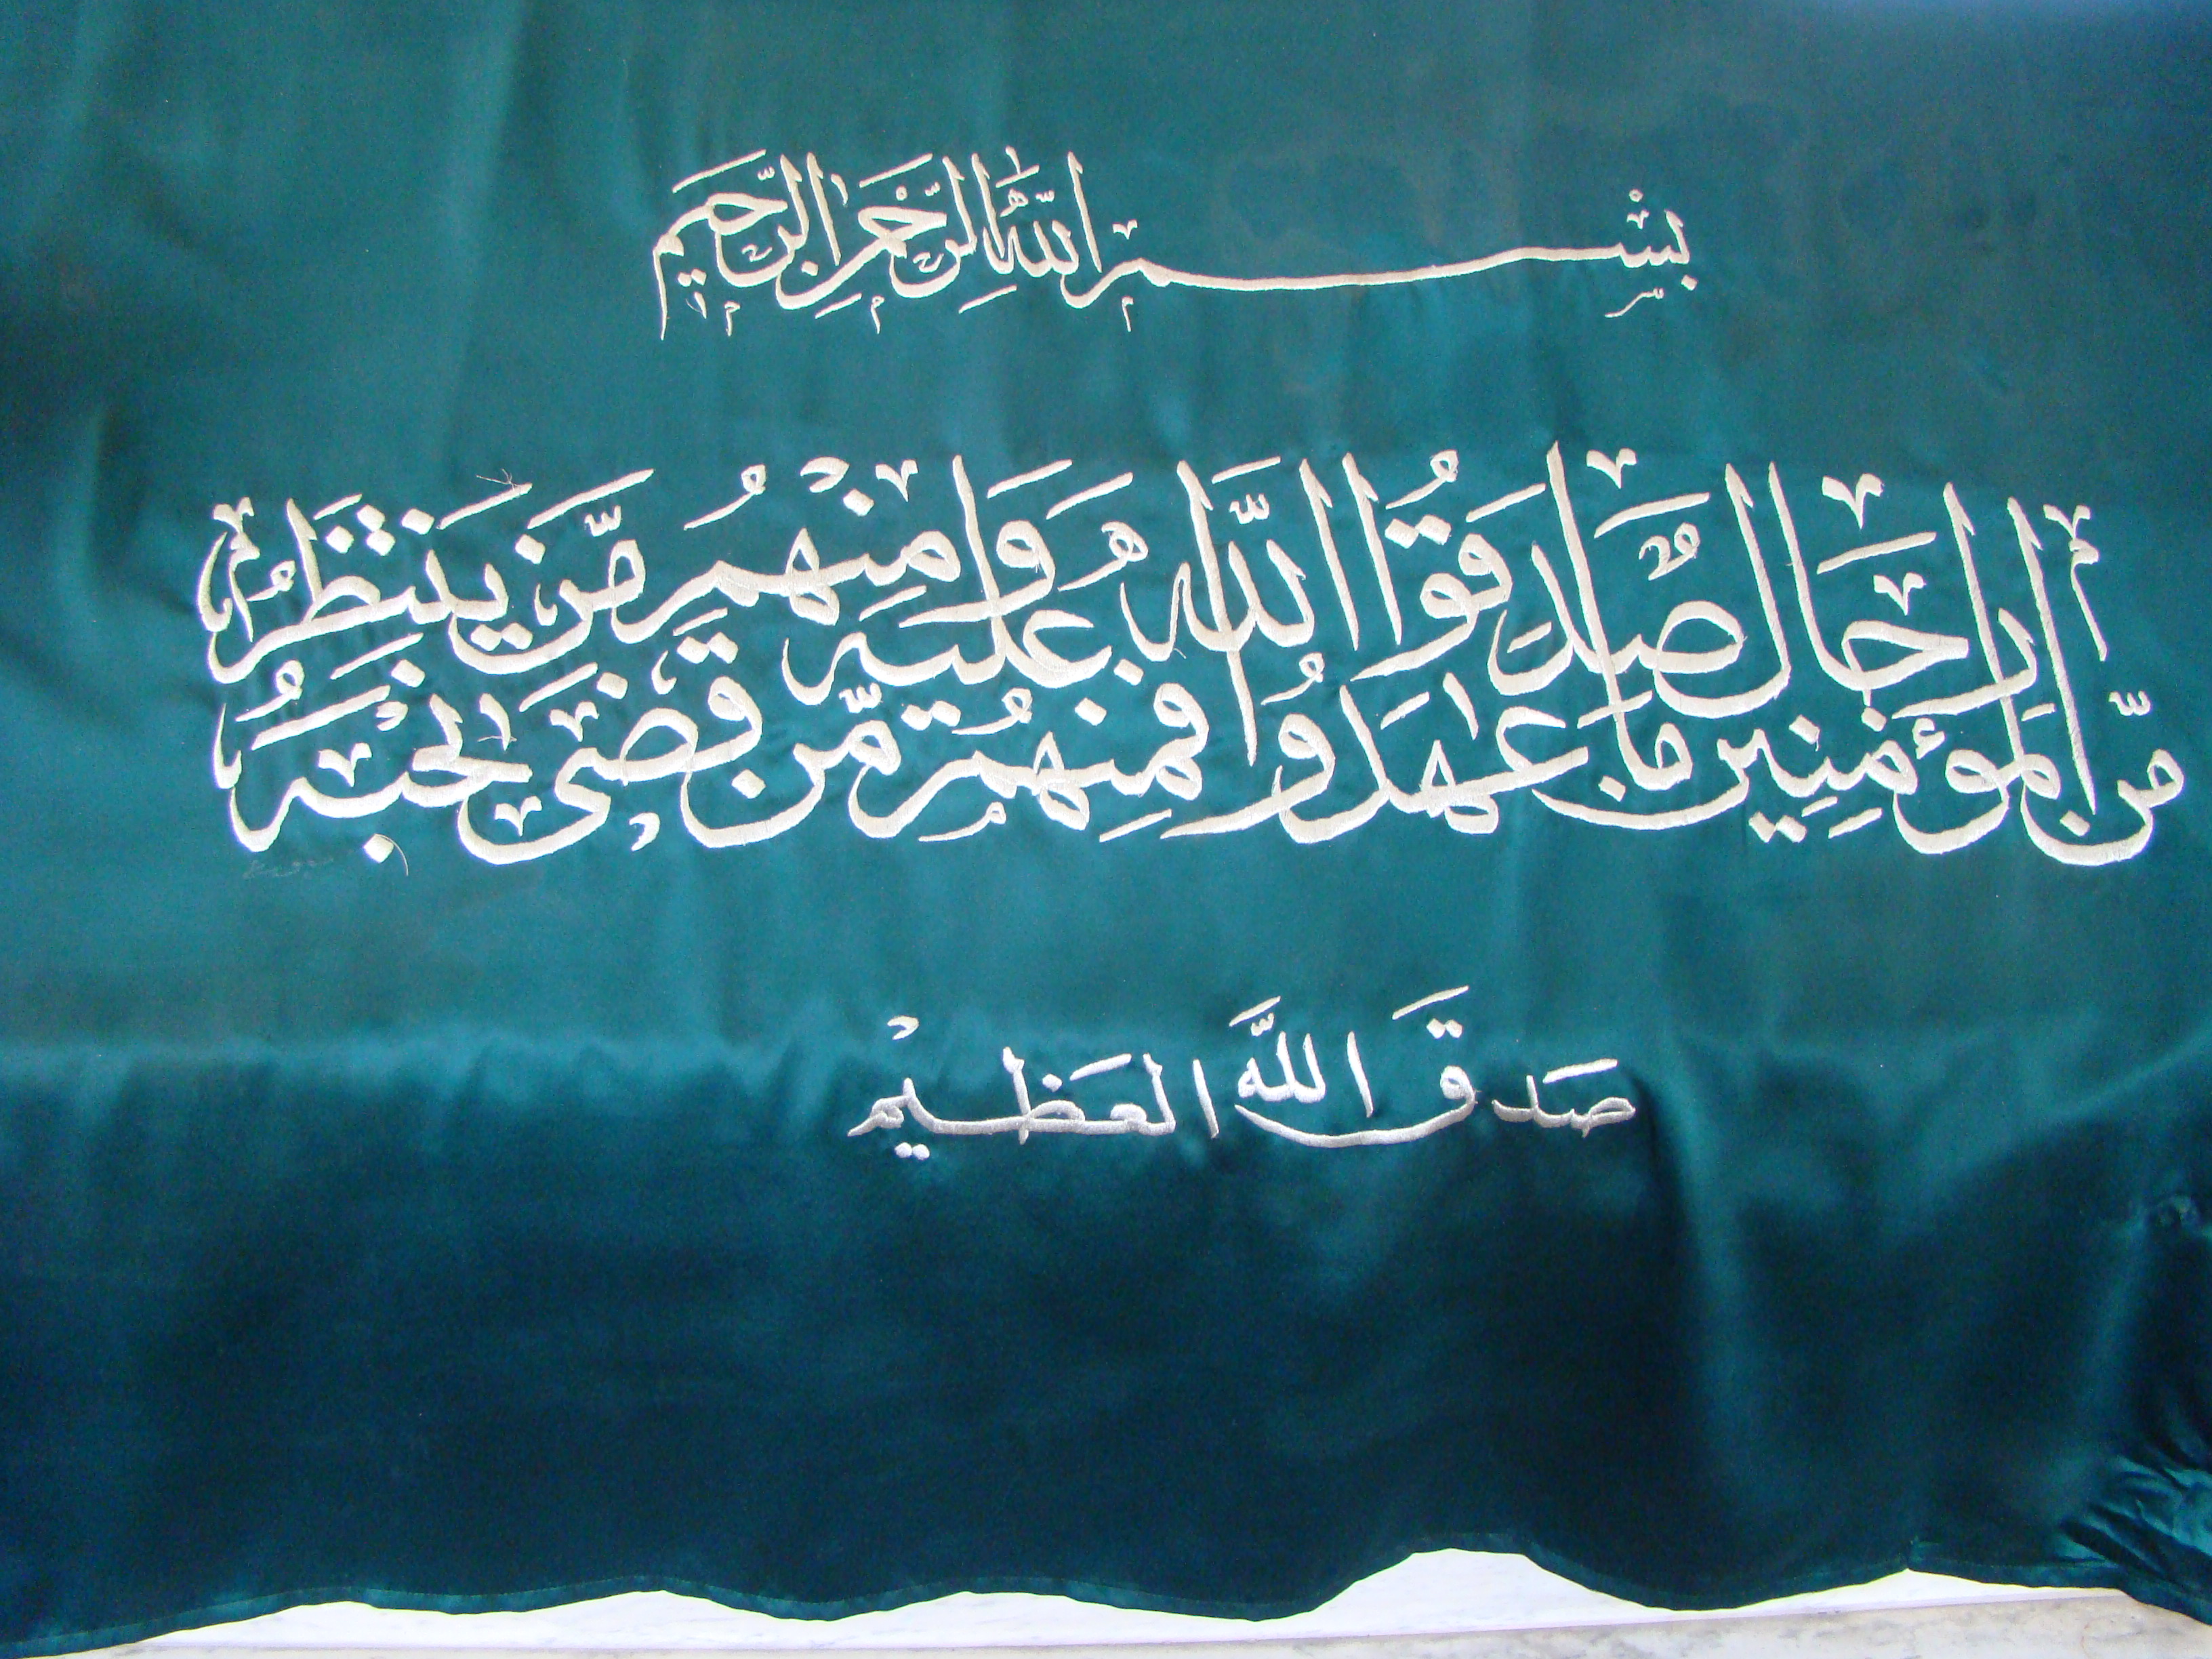 بِسْمِ اللَّهِ الرَّحْمَٰنِ الرَّحِيمِ
مِّنَ الْمُؤْمِنِينَ رِجَالٌ صَدَقُوا مَا عَٰهَدُوا اللَّهَ عَلَيْهِ فَمِنْهُم مَّن قَضَىٰ نَحْبَهُ وَمِنْهُم مَّن يَنتَظِرُ
صَدَقَ اللَّهُ الْعَظِيمْ